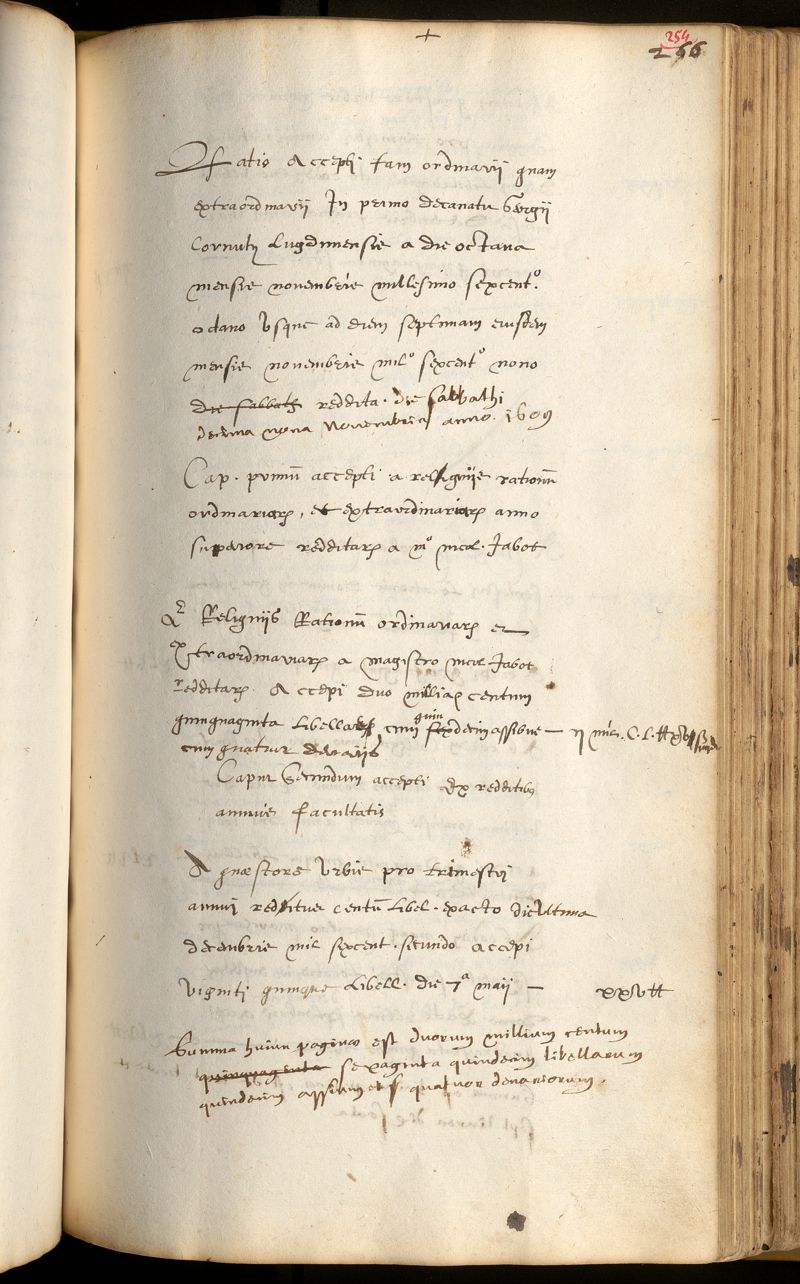 +
254
266
Ratio Accepti tam ordinarii quam
extraordinarii In primo decanatu Georgii
Cornuti Lugdunensis a die octava
mensis novembris millesimo sexcent.º
octavo Usque ad diem septimam eiusdem
mensis novembris mil.º sexcent.º nono
die sabbathi reddita. die sabbathi
decima nona Novembris anno. 1609
Cap. primū accepti a reliquiis rationū
ordinariarꝝ, et extraordinariarꝝ anno
superiore redditarꝝ a mº nicol. Jabot
E Reliquiis Rationū ordinariarꝝ et
Extraordinariarꝝ a magistro nicol. Jabot
redditarꝝ. Accepi duo millia centum
quinquaginta Libellas cum quindecim assibus — ij mil. C. L. ₶
cum quatuor denariis
Caput Secundum accepti Ex redditibus
annuis facultatis
A quæstore Urbis pro trimestri
annui redditus centū Libel. exacto die Ultima
decembris mil sexcent. secundo accepi
viginti quinque Libell. die 7ª maii — xxv₶
Summa huius paginæ est duorum millium centum
quinquaginta septuaginta quindecim libellarum
quindecim assium et quatuor denariorum.